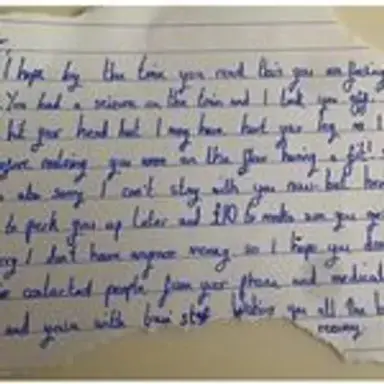 I hope by the time you read this you are feeling
You had a seizure on the train and I took you off
hit your head but I may have hurt your leg
making you worse on the floor having a fit!
also sorry I can't stay with you now but
to perk you up later and £10 to make sure you
I don't have anymore money so I hope you
contacted people from your phone and medical
and you're with train staff. Wishing you all the
recovery